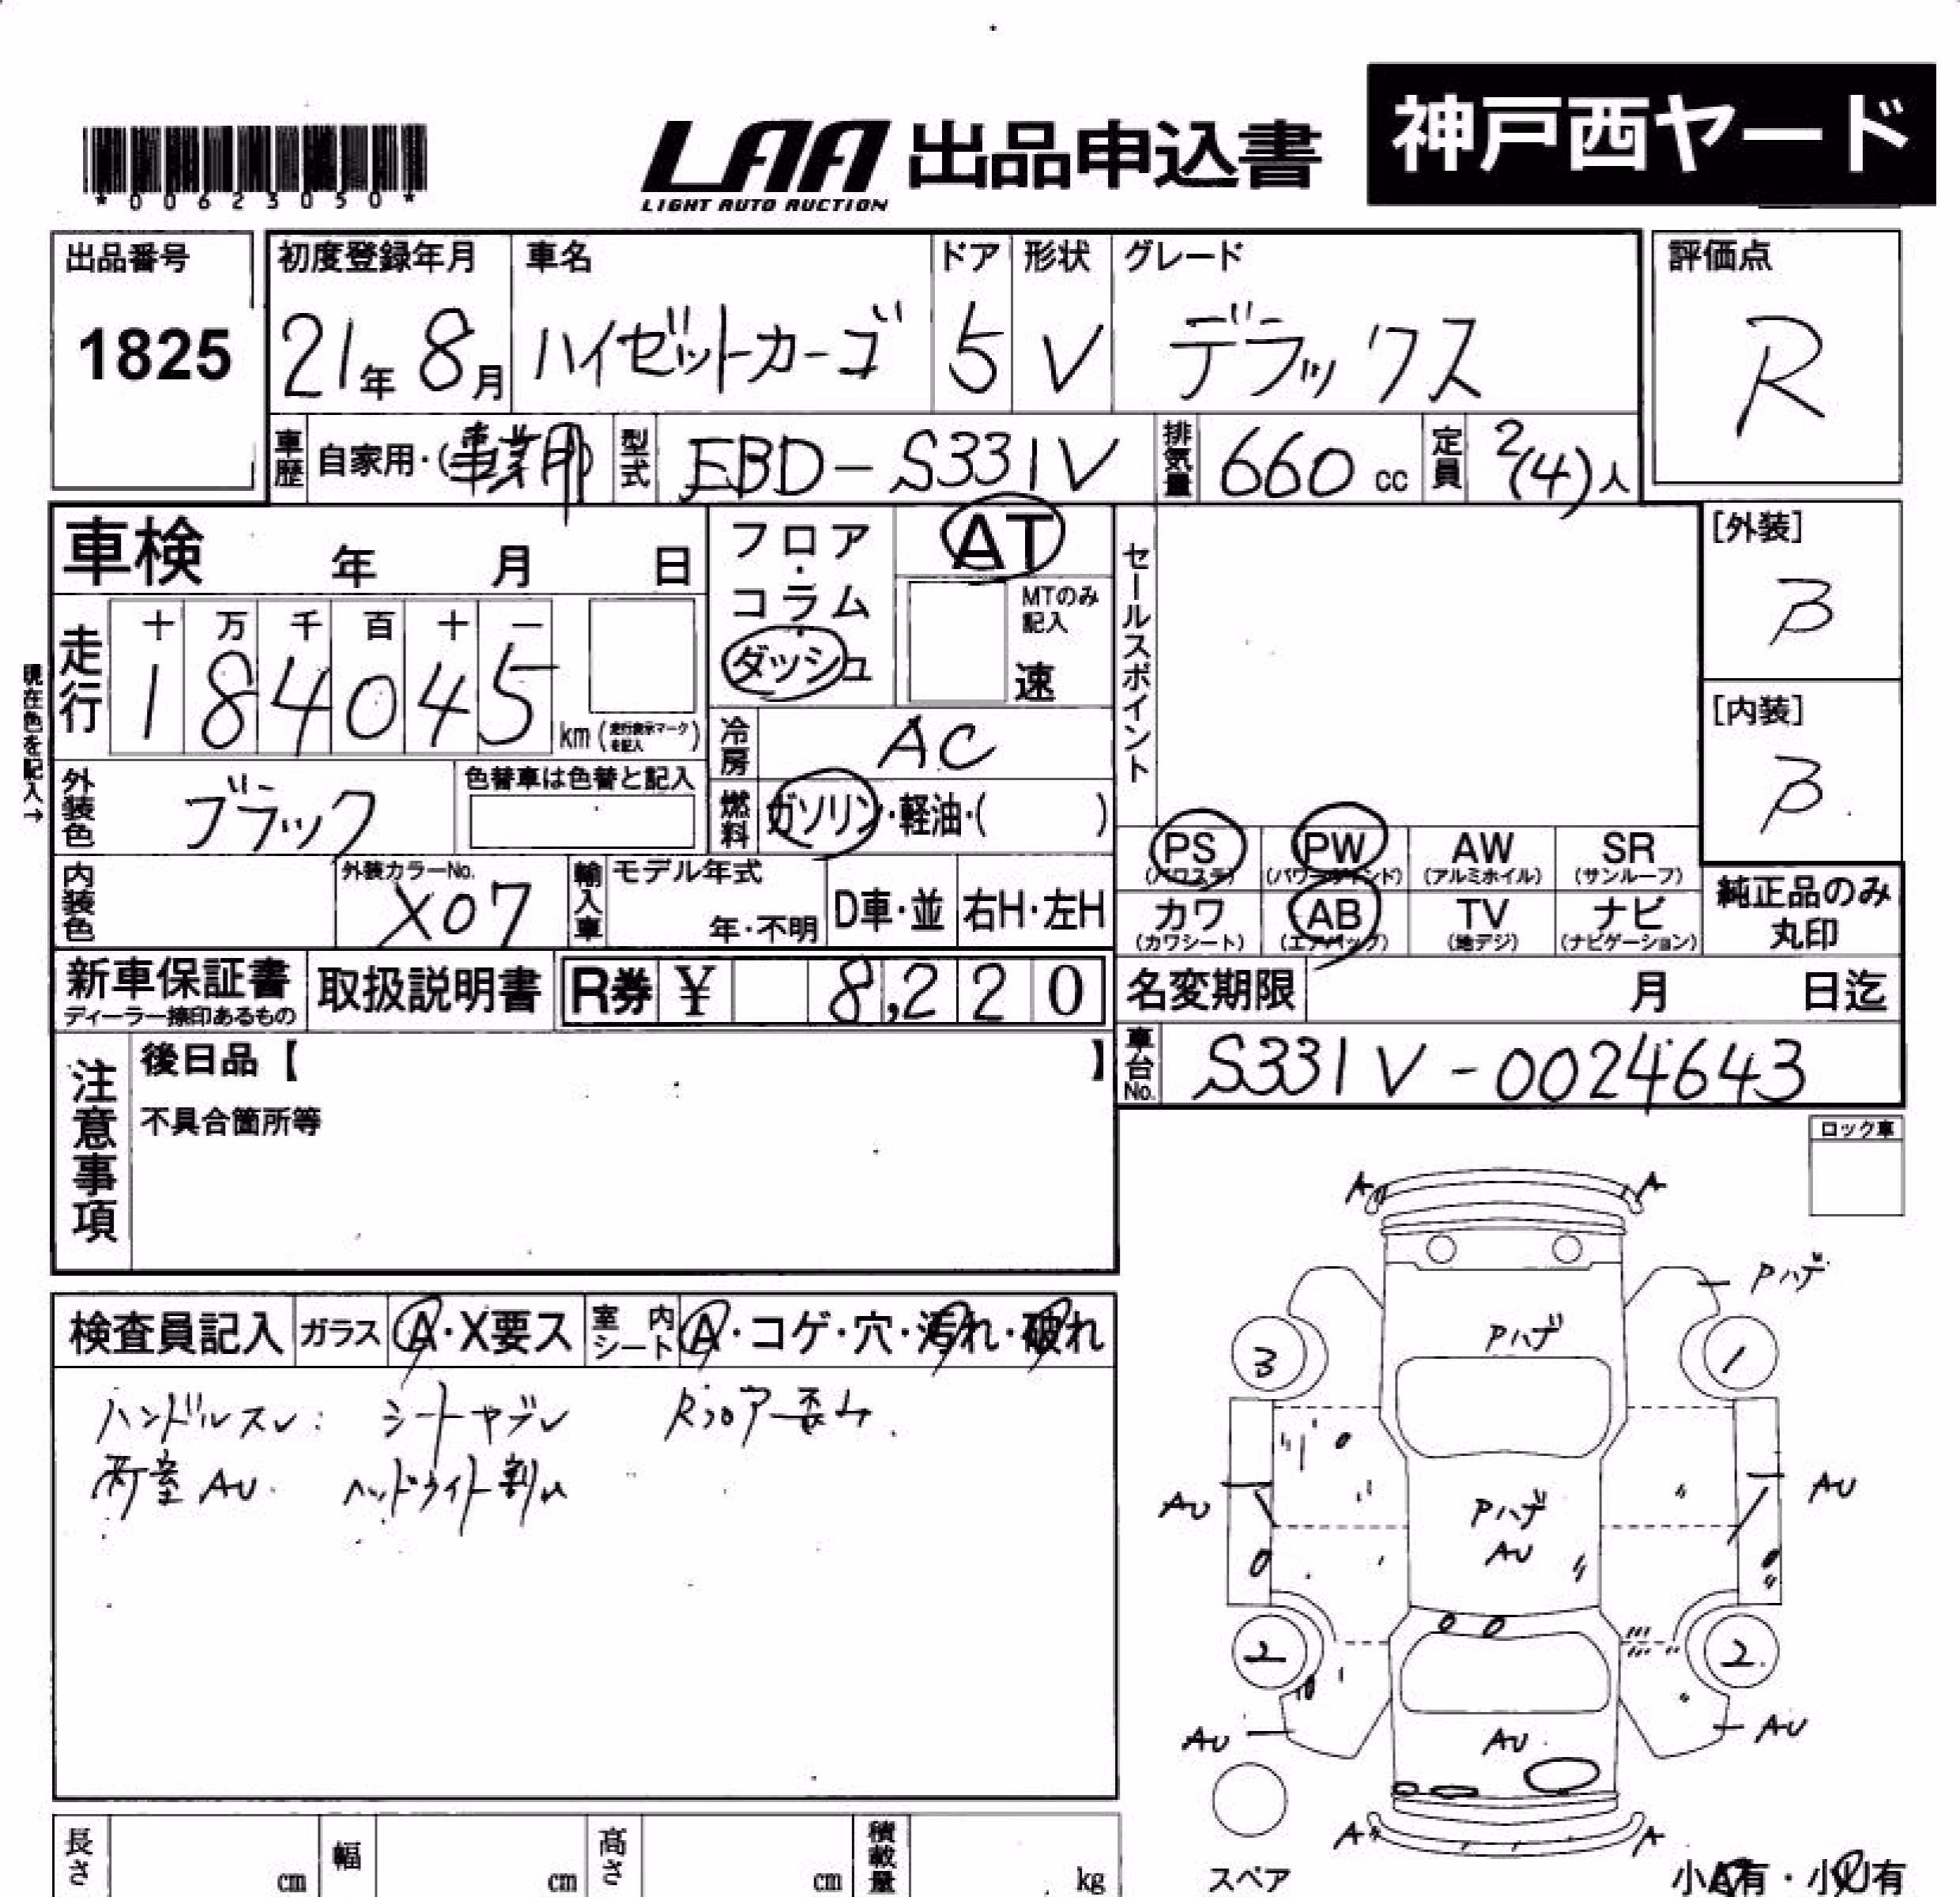 神戸西ヤード
LAA 出品申込書
LIGHT AUTO AUCTION
*00623050*
出品番号 初度登録年月 車名 ドア 形状 グレード 評価点
1825 21年 8月 ハイゼットカーゴ 5 V デラックス R
車歴 自家用・(事業用) 型式 EBD-S331V 排気量 660 cc 定員 2(4)人
車検 年 月 日
フロア・コラム・ダッシュ
AT
MTのみ記入
速
セールスポイント
[外装]
B
[内装]
B
現在色を記入→
走行 十 万 千 百 十 一
184045 km (走行表示マークを記入)
冷房 AC
外装色 ブラック 色替車は色替と記入
燃料 ガソリン・軽油・( )
PS (パワステ) PW (パワーウインド) AW (アルミホイル) SR (サンルーフ)
カワ (カワシート) AB (エアバッグ) TV (地デジ) ナビ (ナビゲーション)
純正品のみ丸印
内装色 外装カラーNo. X07 輸入車 モデル年式 年・不明 D車・並 右H・左H
新車保証書 ディーラー捺印あるもの 取扱説明書 R券 ¥ 8,220 名変期限 月 日迄
車台No. S331V-0024643
注意事項 後日品【 】
不具合箇所等
ロック車
検査員記入 ガラス A・X要ス 室内シート A・コゲ・穴・汚れ・破れ
ハンドルスレ シートヤブレ Rフロア歪ム.
荷室AU. ヘッドライト割レ
A A
Pハゲ
Pハゲ
3 1
Pハゲ
AU AU
AU
2 2
AU AU
AU
A A
スペア
小A有・小U有
長さ cm 幅 cm 高さ cm 積載量 kg